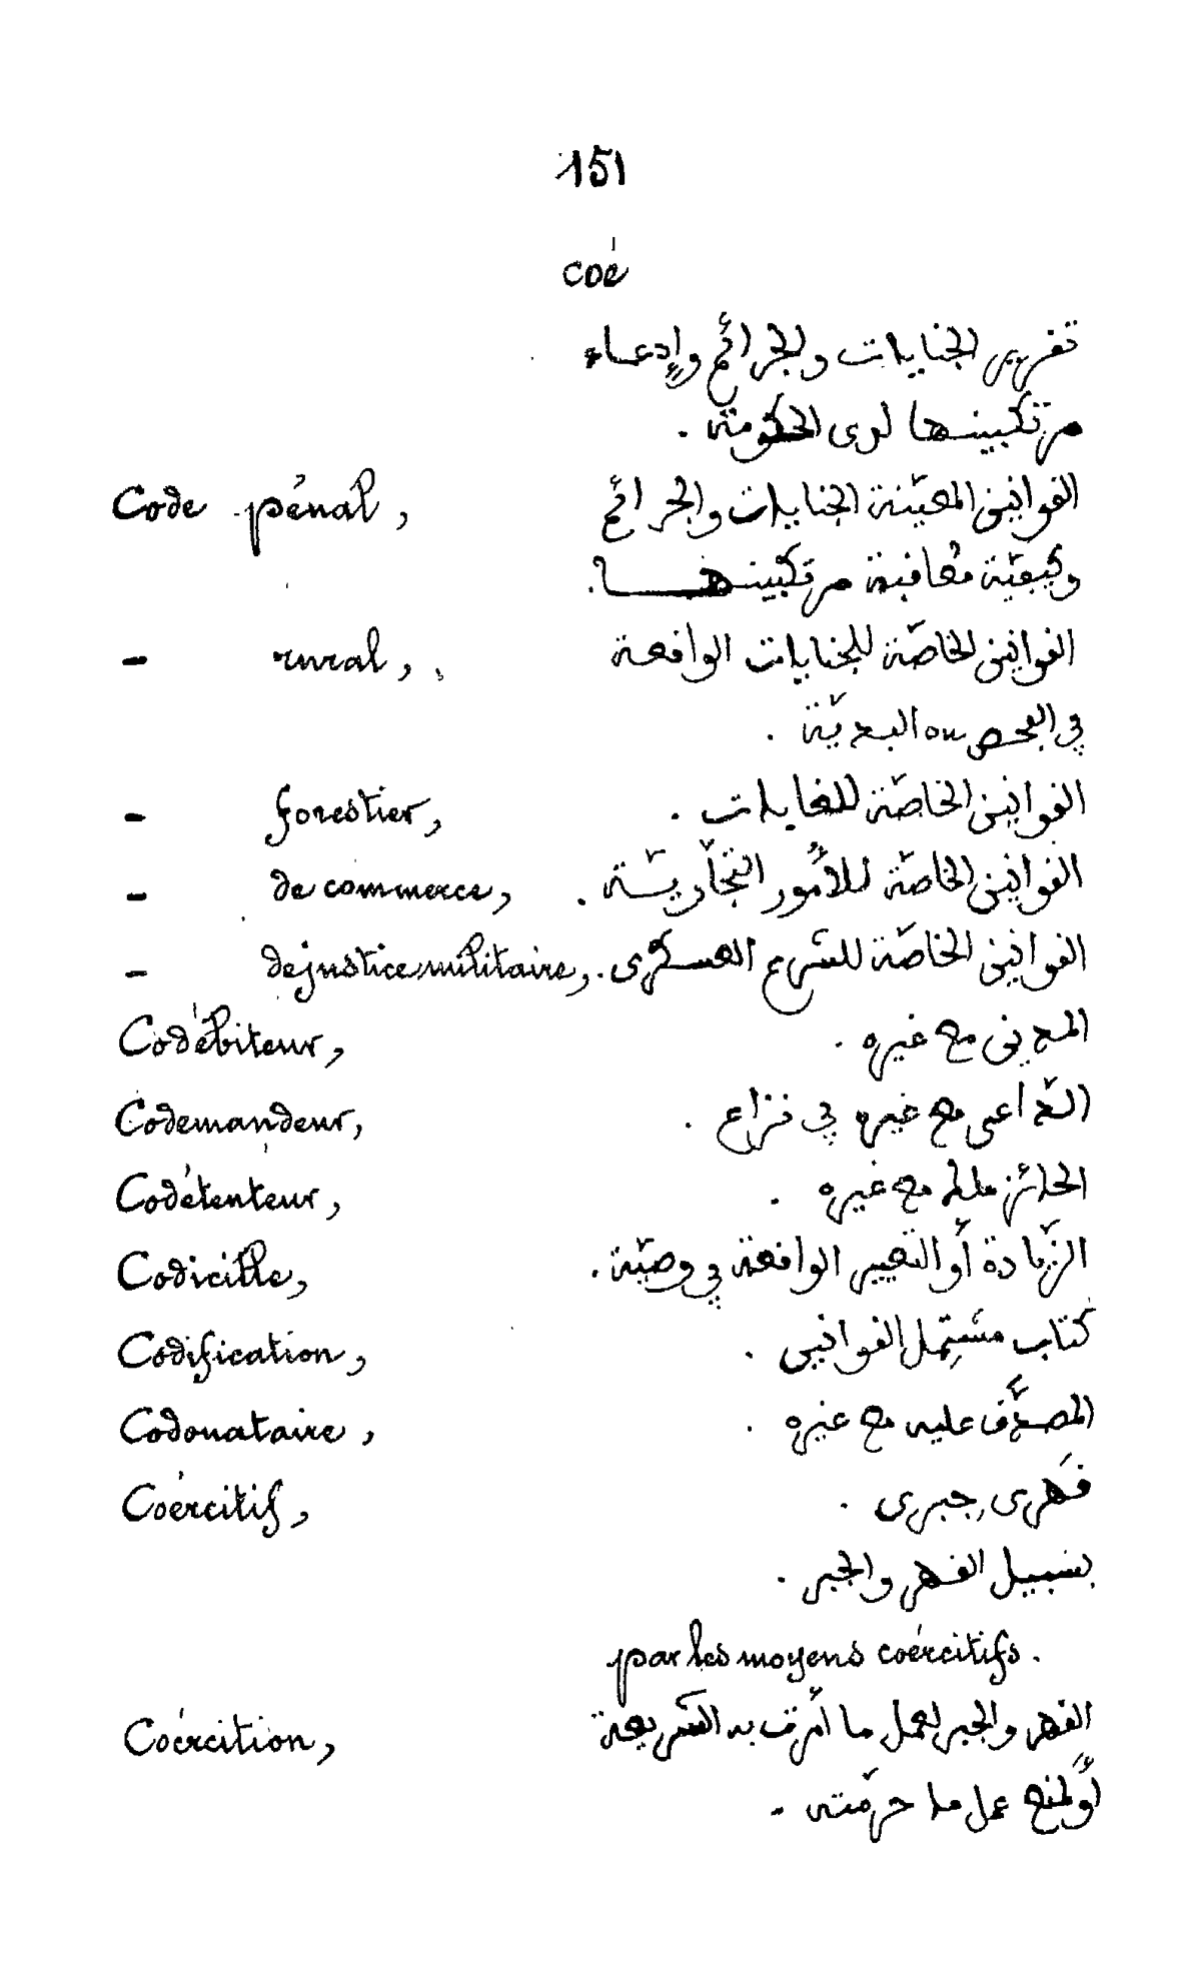 151
coé
تقرير الجنايات والجرائم وإدعاء
مرتكبينها لدى الحكومة .
Code pénal, القوانين المعيّنة الجنايات والجرائم
وكيفيّة معاقبة مرتكبينها .
- rural, القوانين الخاصّة للجنايات الواقعة
في الفحص ou البدنيّة .
- forestier, القوانين الخاصّة للغابات .
- de commerce, القوانين الخاصّة للأمور التجاريّة .
- de justice militaire, القوانين الخاصّة للشرع العسكرى .
Codébiteur, المدين مع غيره .
Codemandeur, الداعى مع غيره في نزاع .
Codétenteur, الحائز ملك مع غيره .
Codicille, الزّيادة أو التغيير الواقعة في وصيّة .
Codification, كتاب مشتمل القوانين .
Codonataire, المصدَّق عليه مع غيره .
Coércitif, قهرى، جبرى .
بسبيل القهر والجبر .
par les moyens coércitifs.
Coércition, القهر والجبر لعمل ما أمرت به الشريعة
أو لمنع عمل ما حرّمته .